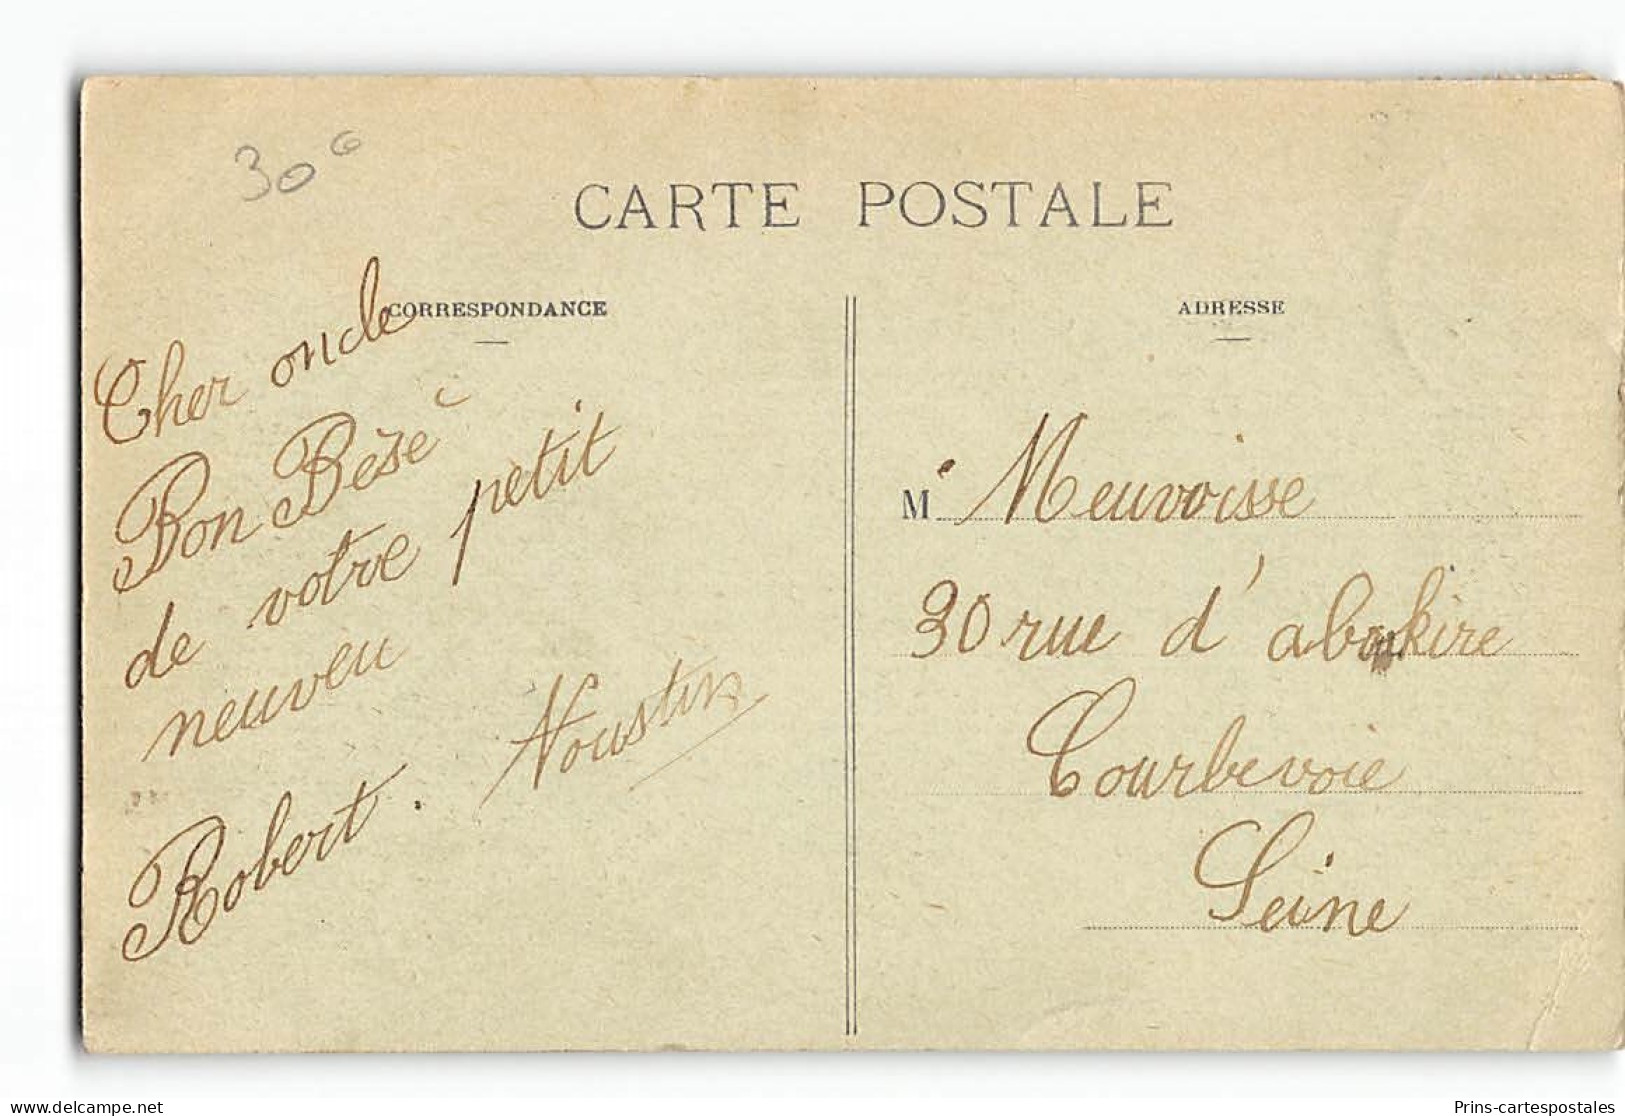 30€
CARTE POSTALE
CORRESPONDANCE
ADRESSE
Cher oncle
Bon Besé
de votre petit
neuveu
Robert. Noustin
M. Meuvoisse
30 rue d'aboukire
Courbevoie
Seine
www.delcampe.net
Prins-cartespostales